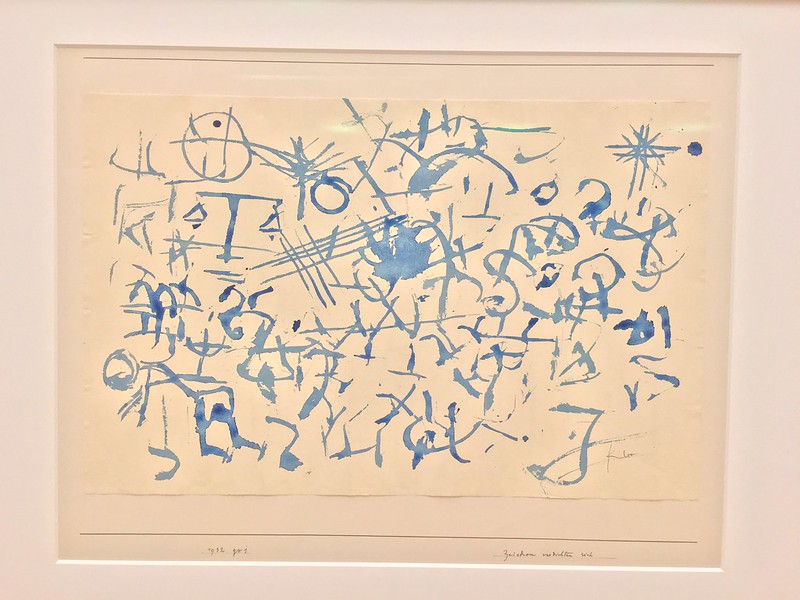 Klee
1932 qu 1 Zeichen verdichten sich